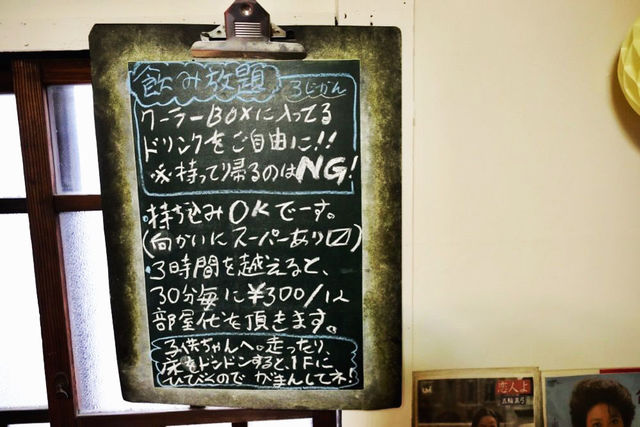 飲み放題 3じかん
クーラーBOXに入ってる
ドリンクをご自由に!!
※持って帰るのはNG!
・持ち込みOKでーす。
(向かいにスーパーあり〼)
・3時間を越えると、
30分毎に¥300/1人
部屋代を頂きます。
子供ちゃんへ。走ったり、
床をドンドンすると、1Fに
ひびくので がまんしてネ!
恋人よ
五輪真弓